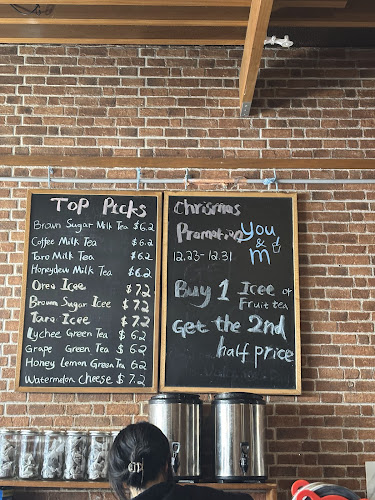 Top Picks
Brown Sugar Milk Tea $6.2
Coffee Milk Tea $6.2
Taro Milk Tea $6.2
Honeydew Milk Tea $6.2
Oreo Icee $7.2
Brown Sugar Icee $7.2
Taro Icee $7.2
Lychee Green Tea $6.2
Grape Green Tea $6.2
Honey Lemon Green Tea $6.2
Watermelon Cheese $7.2
Chrismas
Promotion
12.23-12.31
you
&
m
Buy 1 Icee or
Fruit tea
Get the 2nd
half price